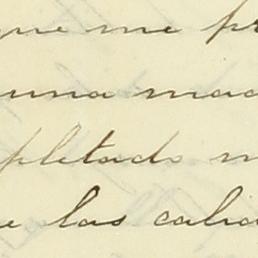 que me pr
una mad
pletado m
e las calid